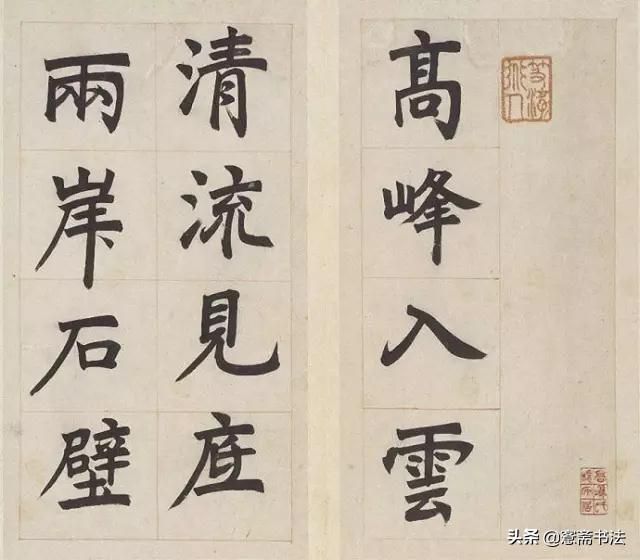 高峰入雲
清流見底
兩岸石壁
头条@窓斋书法